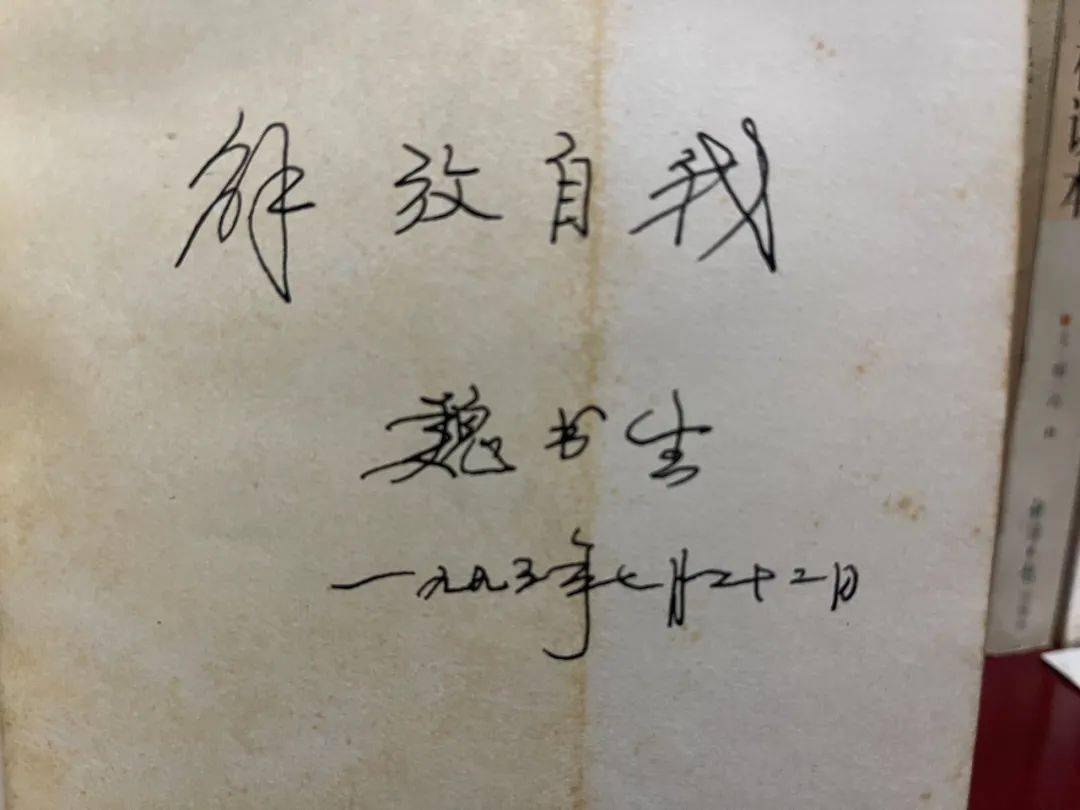 解放自我
魏书生
一九九三年七月二十二日